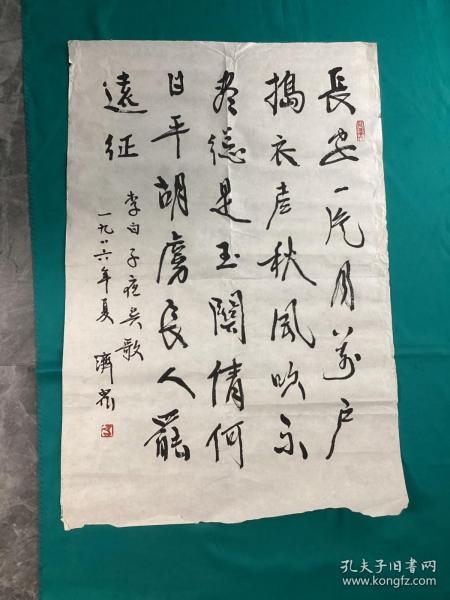 長安一片月萬戶
搗衣聲秋風吹不
盡總是玉關情何
日平胡虜良人罷
遠征
李白子夜吳歌
一九八六年夏 濟
孔夫子旧书网
www.kongfz.com